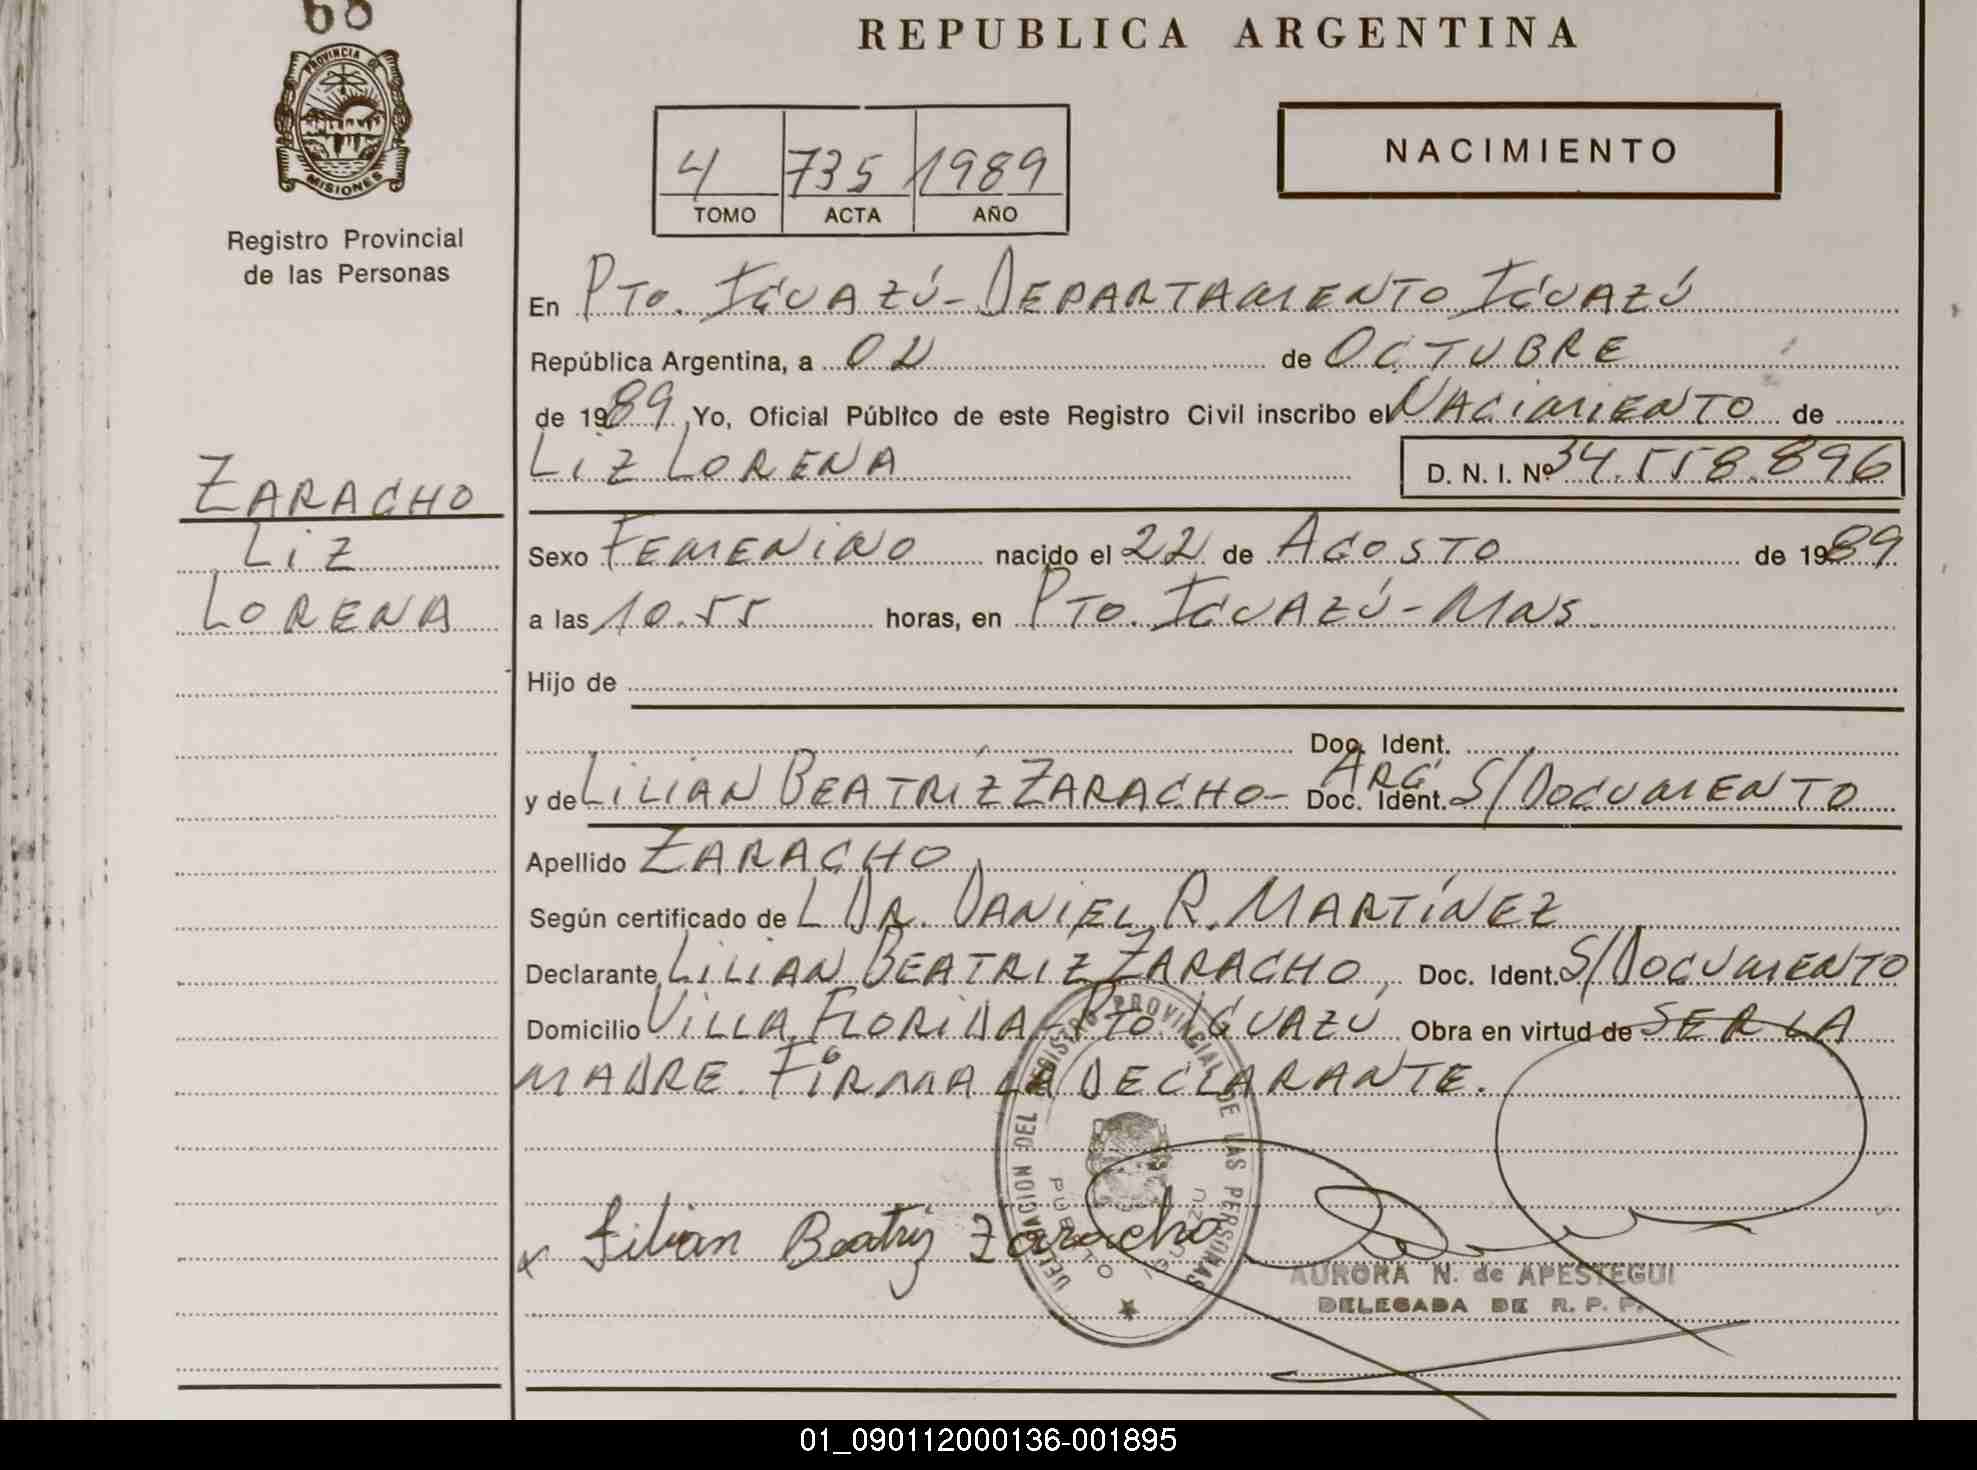 68
REPUBLICA ARGENTINA
PROVINCIA DE
MISIONES
4 735 1989
TOMO ACTA AÑO
NACIMIENTO
Registro Provincial
de las Personas
En PTO. IGUAZÚ - DEPARTAMENTO IGUAZÚ
República Argentina, a 02 de OCTUBRE
de 1989, Yo, Oficial Público de este Registro Civil inscribo el NACIMIENTO de
LIZ LORENA D. N. I. Nº 34.558.896
ZARACHO
LIZ
LORENA
Sexo FEMENINO nacido el 22 de AGOSTO de 1989
a las 10.55 horas, en PTO. IGUAZÚ - MNS.
Hijo de
Doc. Ident.
ARG.
y de LILIAN BEATRÍZ ZARACHO - Doc. Ident. S/DOCUMENTO
Apellido ZARACHO
Según certificado de L DR. DANIEL R. MARTÍNEZ
Declarante LILIAN BEATRIZ ZARACHO, Doc. Ident. S/DOCUMENTO
Domicilio VILLA FLORIDA - PTO. IGUAZU Obra en virtud de SER LA
MADRE. FIRMA LA DECLARANTE.
DELEGACION DEL REGISTRO PROVINCIAL DE LAS PERSONAS
PUERTO IGUAZU
x Lilian Beatriz Zaracho
AURORA N. de APESTEGUI
DELEGADA DE R. P. P.
01_090112000136-001895